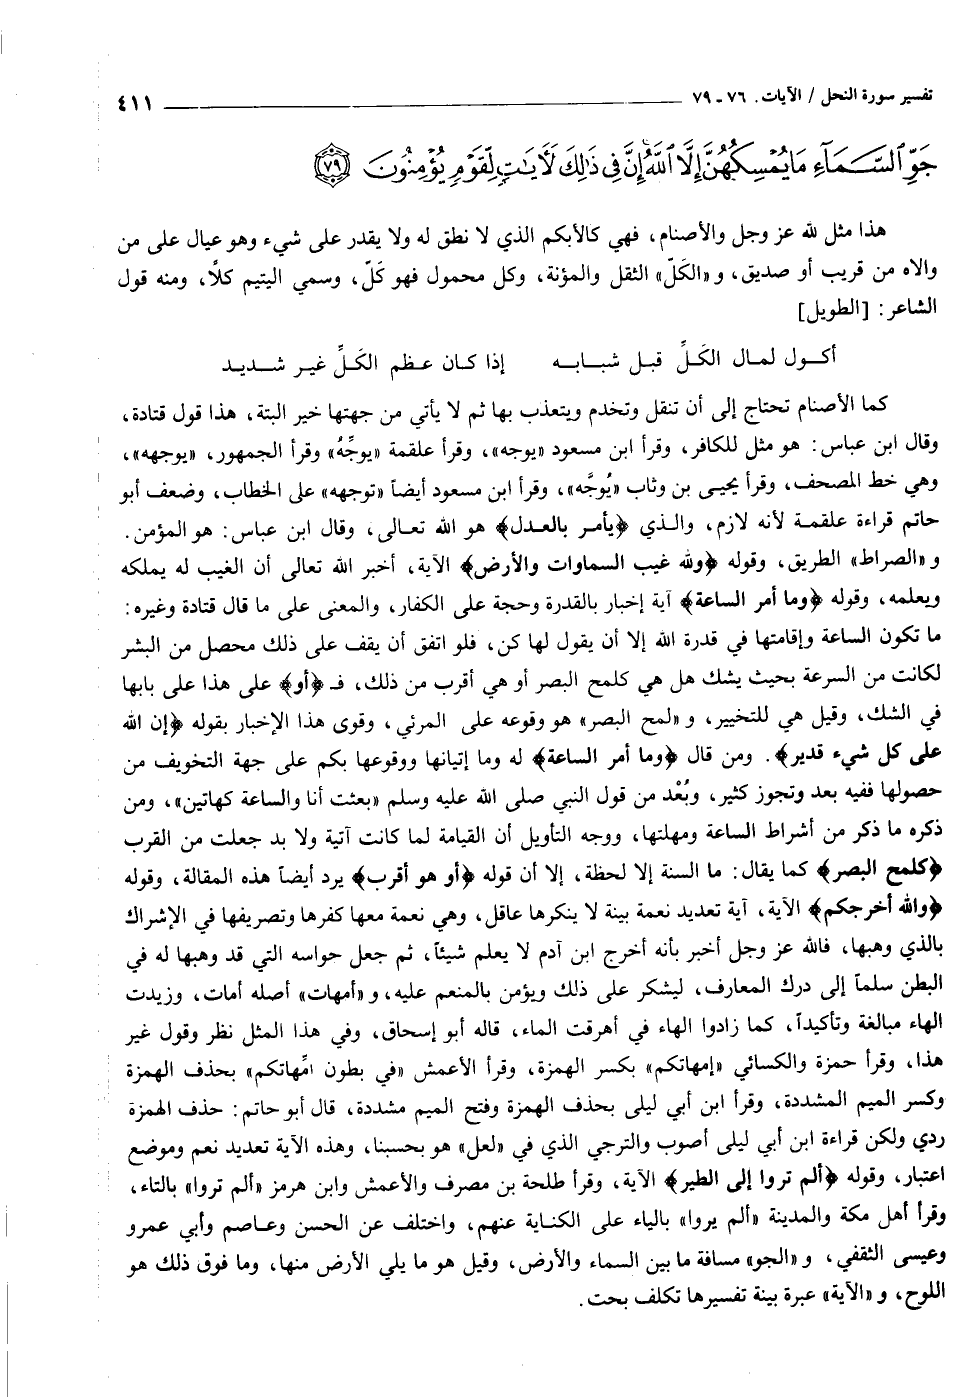 تفسير سورة النحل / الآيات. ٧٦ ـ ٧٩ ٤١١
جَوِّ ٱلسَّمَآءِ مَا يُمْسِكُهُنَّ إِلَّا ٱللَّهُ إِنَّ فِى ذَٰلِكَ لَأَيَٰتٍ لِّقَوْمٍ يُؤْمِنُونَ ٧٩
هذا مثل لله عز وجل والأصنام، فهي كالأبكم الذي لا نطق له ولا يقدر على شيء وهو عيال على من
والاه من قريب أو صديق، و «الكَلّ» الثقل والمؤنة، وكل محمول فهو كَلّ، وسمي اليتيم كلاً، ومنه قول
الشاعر: [الطويل]
أكول لمال الكَلِّ قبل شبابه إذا كان عظم الكَلِّ غير شديد
كما الأصنام تحتاج إلى أن تنقل وتخدم ويتعذب بها ثم لا يأتي من جهتها خير البتة، هذا قول قتادة،
وقال ابن عباس: هو مثل للكافر، وقرأ ابن مسعود «يوجه»، وقرأ علقمة «يوجِّهُ» وقرأ الجمهور، «يوجهه»،
وهي خط المصحف، وقرأ يحيى بن وثاب «يُوجَّه»، وقرأ ابن مسعود أيضاً «توجهه» على الخطاب، وضعف أبو
حاتم قراءة علقمة لأنه لازم، والذي ﴿يأمر بالعدل﴾ هو الله تعالى، وقال ابن عباس: هو المؤمن.
و «الصراط» الطريق، وقوله ﴿ولله غيب السماوات والأرض﴾ الآية، أخبر الله تعالى أن الغيب له يملكه
ويعلمه، وقوله ﴿وما أمر الساعة﴾ آية إخبار بالقدرة وحجة على الكفار، والمعنى على ما قال قتادة وغيره:
ما تكون الساعة وإقامتها في قدرة الله إلا أن يقول لها كن، فلو اتفق أن يقف على ذلك محصل من البشر
لكانت من السرعة بحيث يشك هل هي كلمح البصر أو هي أقرب من ذلك، فـ ﴿أو﴾ على هذا على بابها
في الشك، وقيل هي للتخيير، و «لمح البصر» هو وقوعه على المرئي، وقوى هذا الإخبار بقوله ﴿إن الله
على كل شيء قدير﴾. ومن قال ﴿وما أمر الساعة﴾ له وما إتيانها ووقوعها بكم على جهة التخويف من
حصولها ففيه بعد وتجوز كثير، وبُعْد من قول النبي صلى الله عليه وسلم «بعثت أنا والساعة كهاتين»، ومن
ذكره ما ذكر من أشراط الساعة ومهلتها، ووجه التأويل أن القيامة لما كانت آتية ولا بد جعلت من القرب
﴿كلمح البصر﴾ كما يقال: ما السنة إلا لحظة، إلا أن قوله ﴿أو هو أقرب﴾ يرد أيضاً هذه المقالة، وقوله
﴿والله أخرجكم﴾ الآية، آية تعديد نعمة بينة لا ينكرها عاقل، وهي نعمة معها كفرها وتصريفها في الإشراك
بالذي وهبها، فالله عز وجل أخبر بأنه أخرج ابن آدم لا يعلم شيئاً، ثم جعل حواسه التي قد وهبها له في
البطن سلماً إلى درك المعارف، ليشكر على ذلك ويؤمن بالمنعم عليه، و «أمهات» أصله أمات، وزيدت
الهاء مبالغة وتأكيداً، كما زادوا الهاء في أهرقت الماء، قاله أبو إسحاق، وفي هذا المثل نظر وقول غير
هذا، وقرأ حمزة والكسائي «إمهاتكم» بكسر الهمزة، وقرأ الأعمش «في بطون امِّهاتكم» بحذف الهمزة
وكسر الميم المشددة، وقرأ ابن أبي ليلى بحذف الهمزة وفتح الميم مشددة، قال أبو حاتم: حذف الهمزة
ردي ولكن قراءة ابن أبي ليلى أصوب والترجي الذي في «لعل» هو بحسبنا، وهذه الآية تعديد نعم وموضع
اعتبار، وقوله ﴿ألم تروا إلى الطير﴾ الآية، وقرأ طلحة بن مصرف والأعمش وابن هرمز «ألم تروا» بالتاء،
وقرأ أهل مكة والمدينة «ألم يروا» بالياء على الكناية عنهم، واختلف عن الحسن وعاصم وأبي عمرو
وعيسى الثقفي، و «الجو» مسافة ما بين السماء والأرض، وقيل هو ما يلي الأرض منها، وما فوق ذلك هو
اللوح، و «الآية» عبرة بينة تفسيرها تكلف بحت.